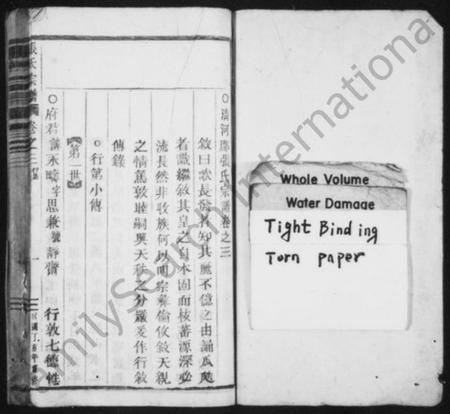 清河郡張氏宗譜卷之三
敘曰歌長發者知其麗不億之由誦瓜瓞
者識繼敘其呈之自本固而枝蕃源深必
流長然非收族何以明宗彝倫攸敘天親
之情篤敦睦嗣興天秩之分嚴爰作行敘
傳錄
○行第小傳
【第一世】
○府君諱永 字思兼號靜齋 行敦七德性
張氏宗譜 卷之三 一
Whole Volume
Water Damage
Tight Binding
Torn paper
FamilySearch International